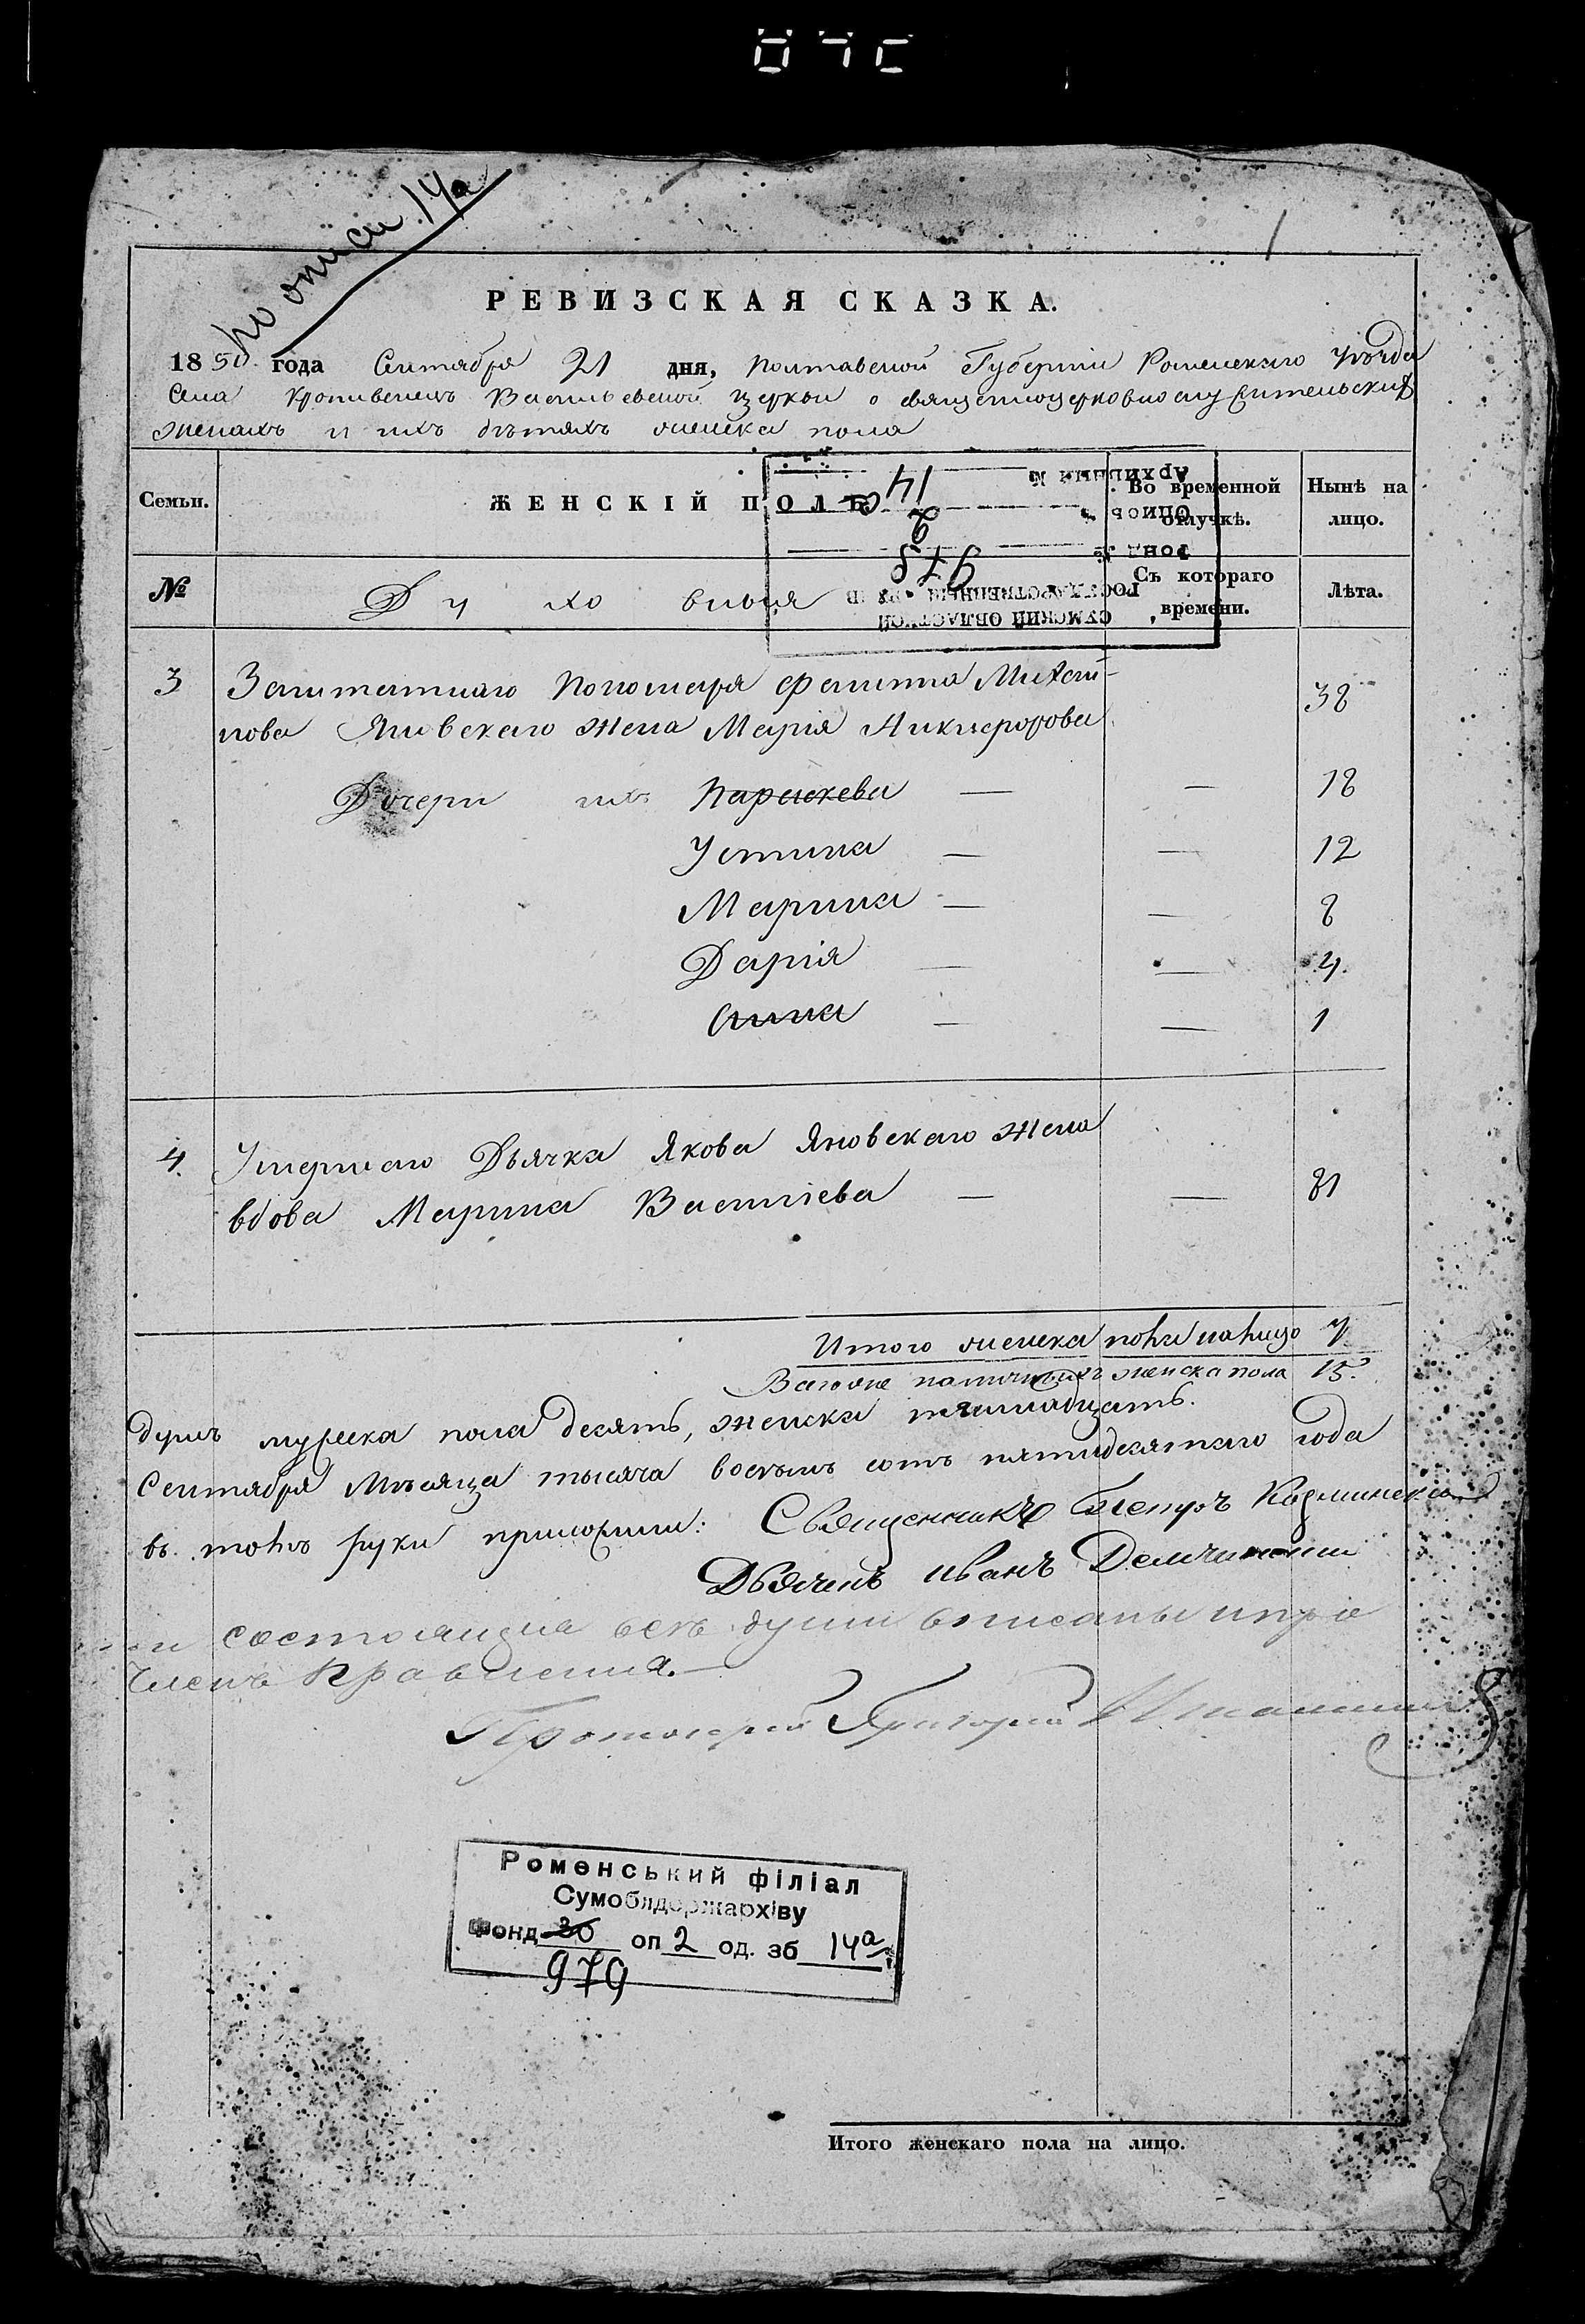 по описи 14а
1
РЕВИЗСКАЯ СКАЗКА.
1850 года Сентября 21 дня, Полтавской Губерніи Роменскаго Уѣзда
Села Кропивенецъ Васильевской церкви о священноцерковнослужительскихъ
женахъ и ихъ дѣтяхъ женска пола
Семьи.
ЖЕНСКІЙ ПОЛЪ.
Во временной отлучкѣ.
Нынѣ на лицо.
№
Духовныя
Съ котораго времени.
Лѣта.
СУМСКИЙ ОБЛАСТНОЙ
ГОСУДАРСТВЕННЫЙ
ФОНД № 978
ОПИСЬ 2
АРХИВНЫЙ № 14а
3 Заштатнаго Пономаря Филиппа Михай- 38
лова Яновскаго жена Марія Никифорова
Дочери ихъ Параскева — — 18
Устина — — 12
Марина — — 8
Дарія — — 4.
Анна — — 1
4. Умершаго Дьячка Якова Яновскаго жена
вдова Марина Василіева — — 81
Итого женска пола на лицо 7
Всего же наличныхъ женска пола 15.
душъ мужеска пола десять, женска пятнадцать.
Сентября Мѣсяца тысяча восемь сотъ пятидесятаго года
въ томъ руки приложили: Священникъ Петръ
Дьячекъ Иванъ
состоящія всѣ души вписаны
Членъ Правленія.—
Протоіерей Григорій
Роменський філіал
Сумоблдержархіву
Фонд 30 оп 2 од. зб 14а
979
Итого женскаго пола на лицо.